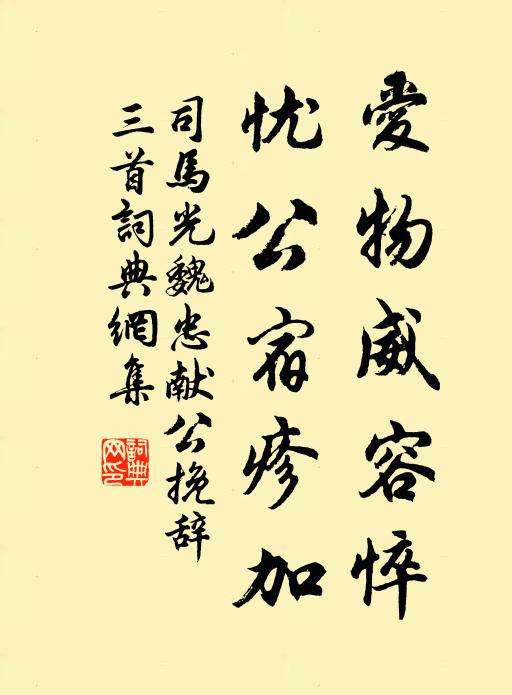 愛物威容悴
忧公宿疹加
司馬光魏忠献公挽辞
三首詞典網集
詞典
网印